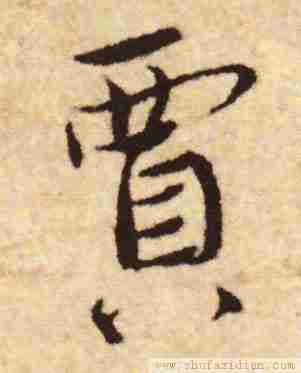 賈
www.shufazidian.com